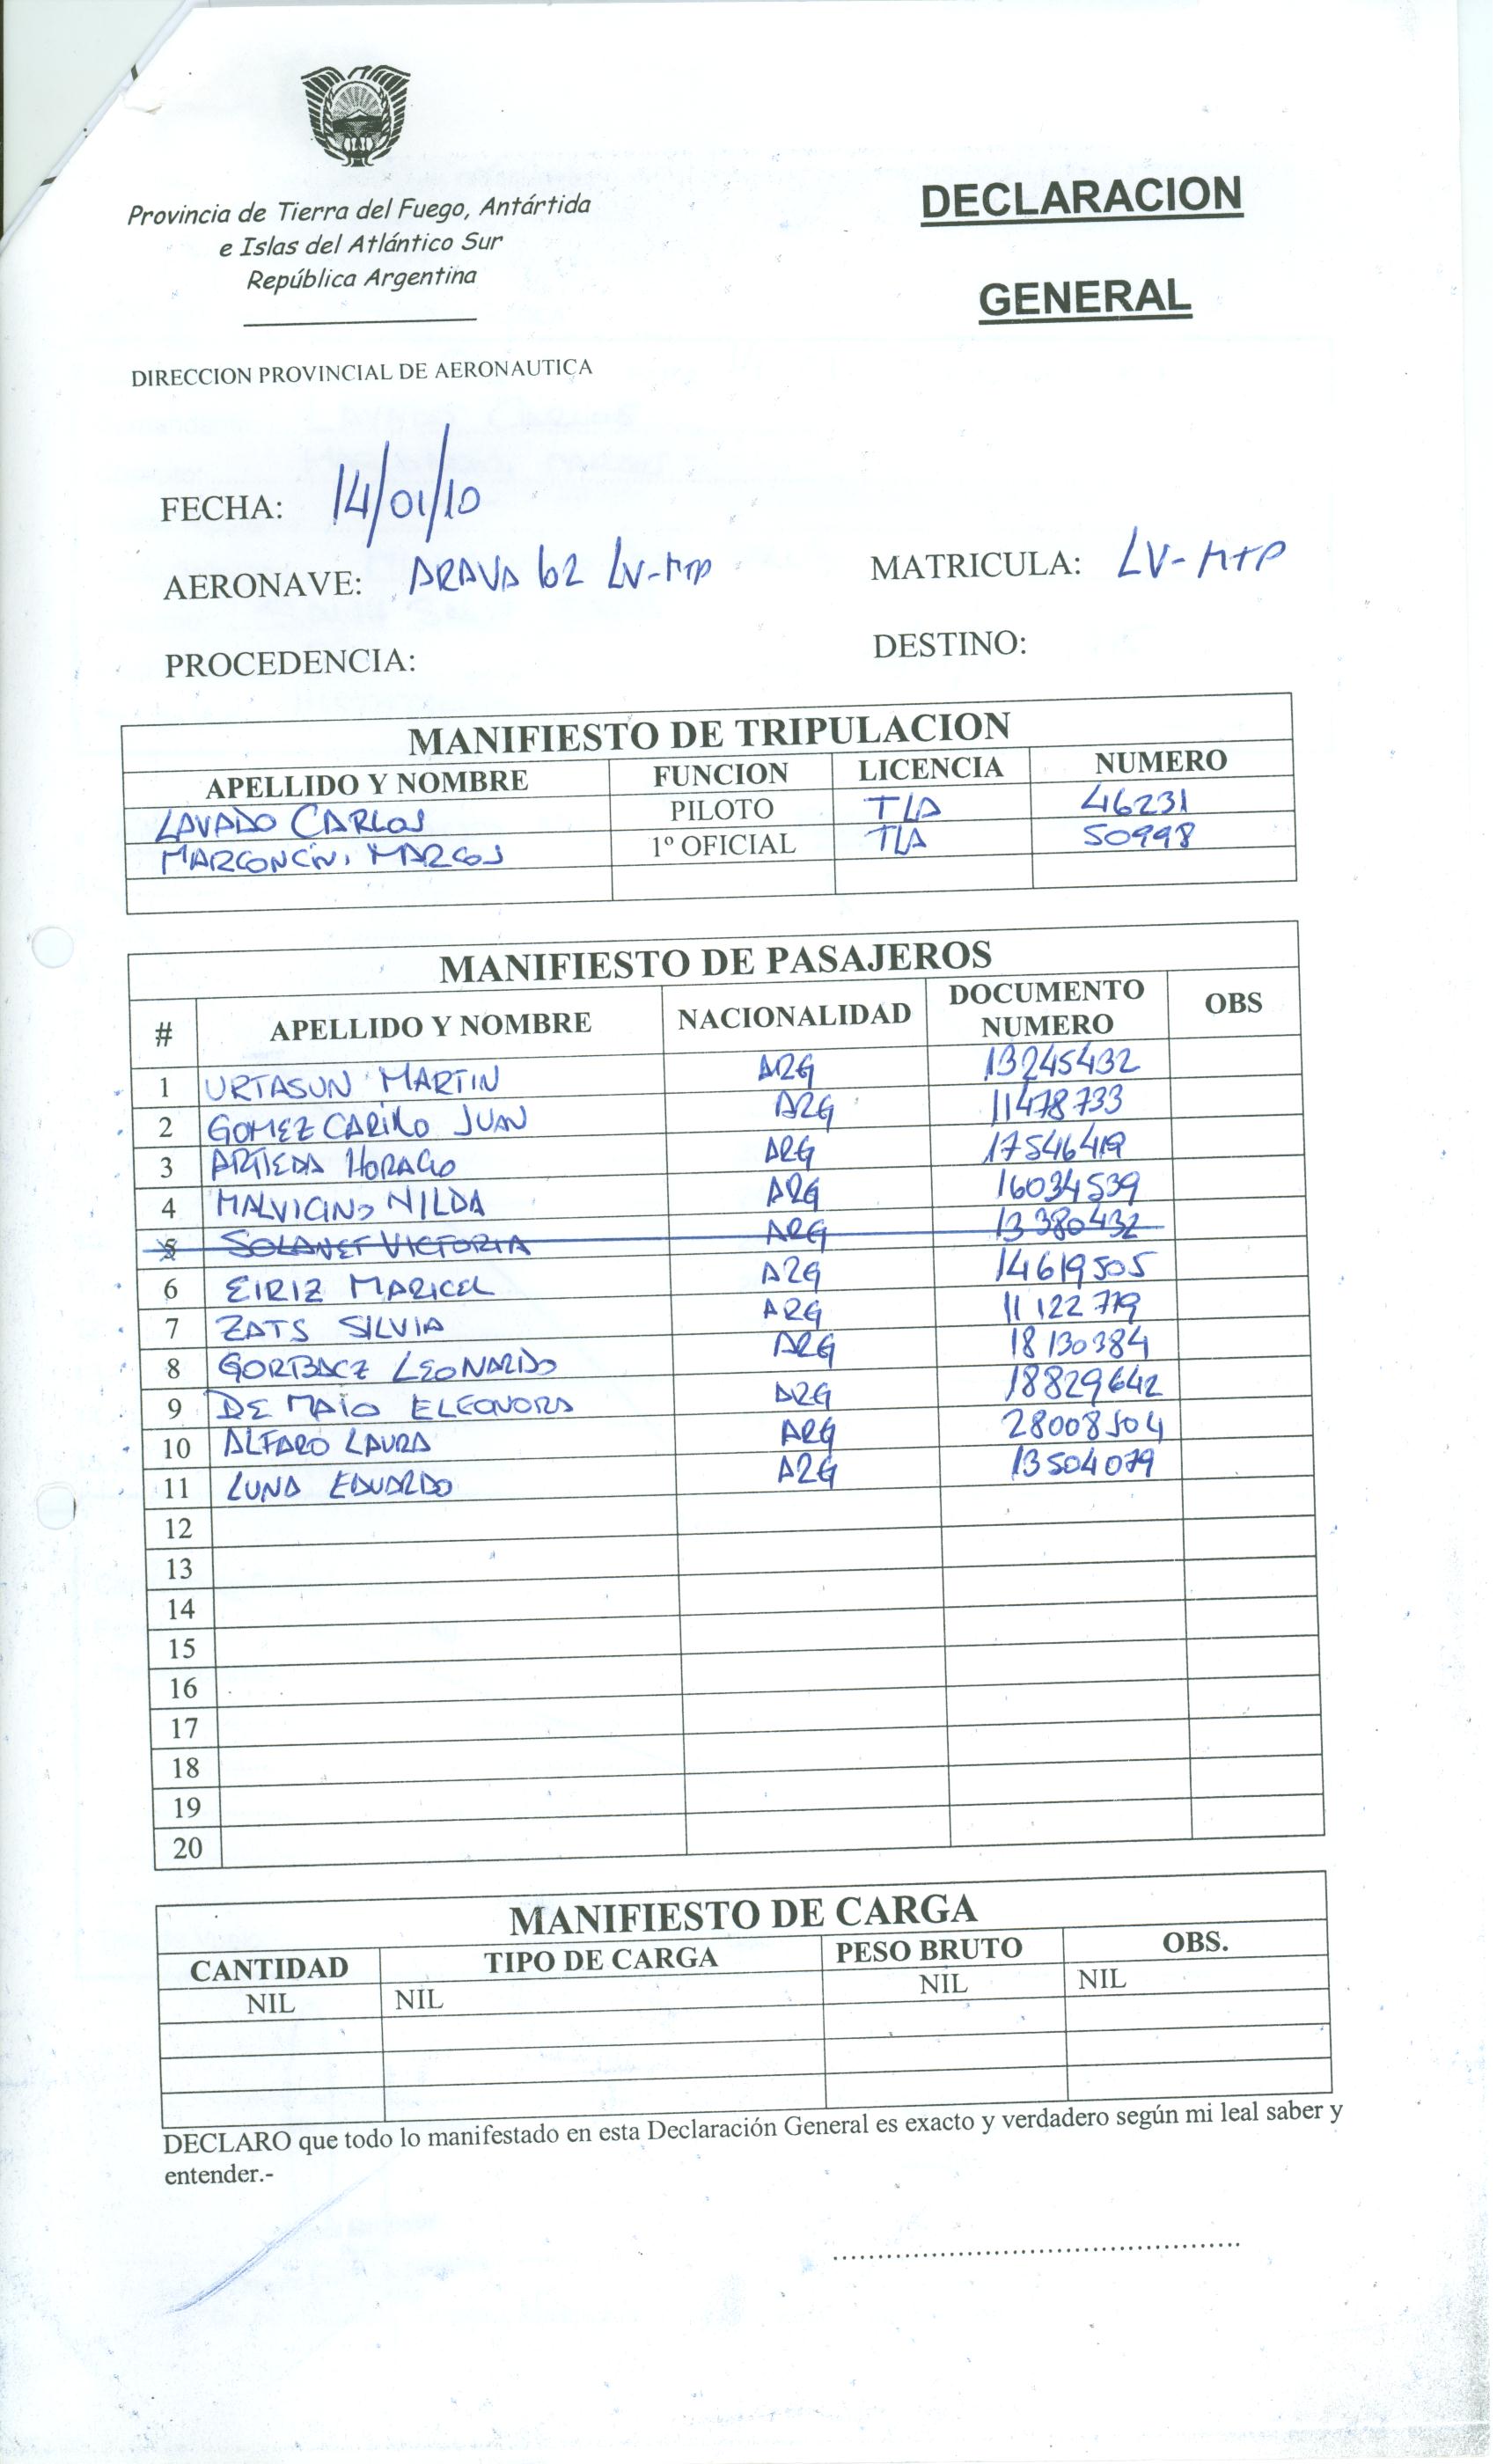 Provincia de Tierra del Fuego, Antártida
e Islas del Atlántico Sur
República Argentina
DECLARACION
GENERAL
DIRECCION PROVINCIAL DE AERONAUTICA
FECHA: 14/01/10
AERONAVE: ARAVA 62 LV-MTP MATRICULA: LV-MTP
PROCEDENCIA: DESTINO:
MANIFIESTO DE TRIPULACION
APELLIDO Y NOMBRE FUNCION LICENCIA NUMERO
LAVADO CARLOS PILOTO TLA 46231
MARCONCINI MARCOS 1º OFICIAL TLA 50998
MANIFIESTO DE PASAJEROS
# APELLIDO Y NOMBRE NACIONALIDAD DOCUMENTO NUMERO OBS
1 URTASUN MARTIN ARG 13245432
2 GOMEZ CARIÑO JUAN ARG 11478733
3 ARTIEDA HORACIO ARG 17546419
4 MALVICINO NILDA ARG 16034539
5 SOLANET VICTORIA ARG 13380432
6 EIRIZ MARICEL ARG 14619505
7 ZATS SILVIA ARG 11122779
8 GORBACZ LEONARDO ARG 18130384
9 DE MAIO ELEONORA ARG 18829642
10 ALFARO LAURA ARG 28008504
11 LUNA EDUARDO ARG 13504079
12
13
14
15
16
17
18
19
20
MANIFIESTO DE CARGA
CANTIDAD TIPO DE CARGA PESO BRUTO OBS.
NIL NIL NIL NIL
DECLARO que todo lo manifestado en esta Declaración General es exacto y verdadero según mi leal saber y
entender.-